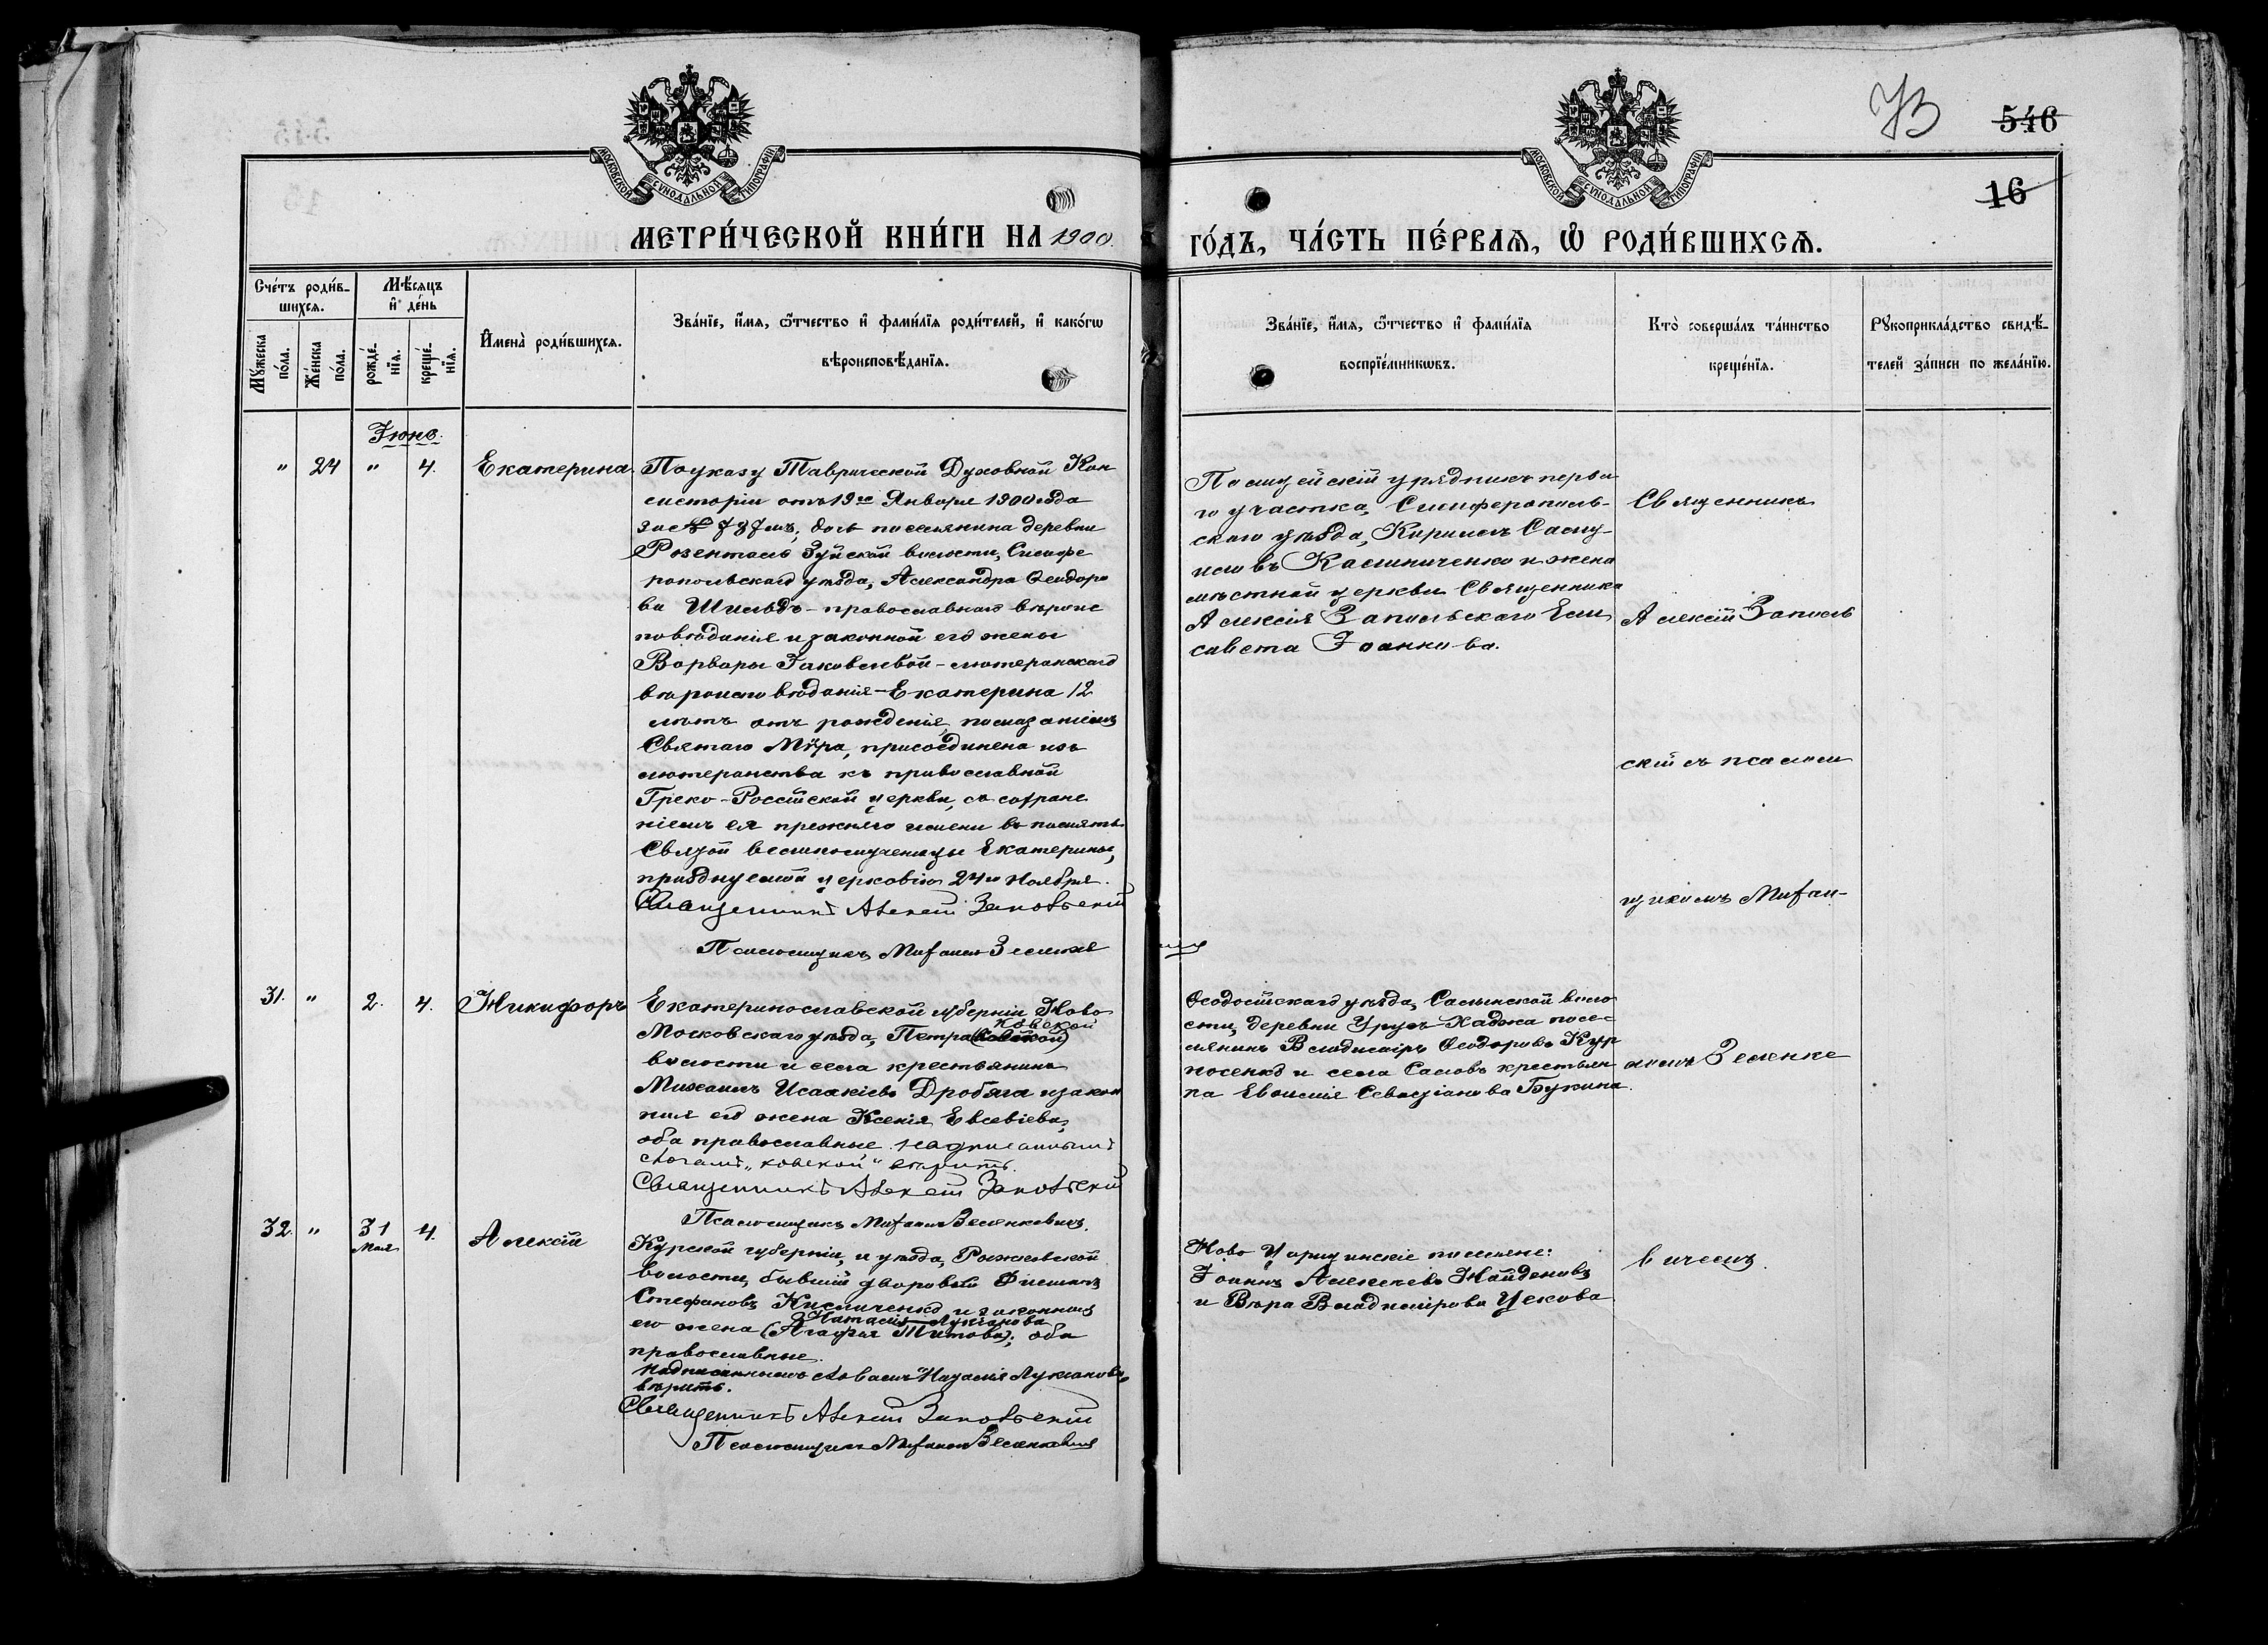 73
546
16
МОСКОВСКОЙ СѴНОДАЛЬНОЙ ТИПОГРАФІИ
МОСКОВСКОЙ СѴНОДАЛЬНОЙ ТИПОГРАФІИ
МЕТРИ́ЧЕСКОЙ КНИ́ГИ НА 1900.
ГО́ДЪ, ЧА́СТЬ ПЕ́РВАѦ, Ѽ РОДИ́ВШИХСѦ.
Сче́тъ роди́в-
шихсѧ.
Мѣ́сѧцъ
и҆ де́нь
Мꙋ́жеска
по́ла.
Же́нска
по́ла.
рожде́-
нїѧ.
креще́-
нїѧ.
И҆мена̀ роди́вшихсѧ.
Зва́нїе, и҆́мѧ, ѻ҆́тчество и҆ фами́лїѧ роди́телей, и҆ како́гѡ
вѣроисповѣ́данїѧ.
Зва́нїе, и҆́мѧ, ѻ҆́тчество и҆ фами́лїѧ
воспрїе́мникѡвъ.
Кто̀ соверша́лъ та́инство
креще́нїѧ.
Рꙋкоприкла́дство свидѣ́-
телей за́писи по жела́нїю.
Іюнь.
" 24 " 4. Екатерина
По указу Таврической Духовной Кон
систоріи отъ 19го Января 1900 года
за № 737мъ, дочь поселянина деревни
Розенталь Зуйской волости, Симфе
ропольскаго уѣзда, Александра Ѳеодоро
ва Шильдъ - православнаго вѣроис
повѣданія и законной его жены
Варвары Іаковлевой - лютеранскаго
вѣроисповѣданія - Екатерина 12
лѣтъ отъ рожденія, помазаніемъ
Святаго Мѵра, присоединена изъ
лютеранства къ православной
Греко-Россійской церкви, съ сохране
ніемъ ея прежняго имени въ память
Святой великомученицы Екатерины,
празднуемой церковію 24го Ноября.
Священникъ Алексій Запольскій
Псаломщикъ Митрофан Зеленке
вичъ
Полицейскій урядникъ перва
го участка, Симферополь-
скаго уѣзда, Кириллъ Саму-
иловъ Калиниченко и жена
мѣстной церкви Священника
Алексія Запольскаго Ели
савета Іоаннова.
Священникъ
Алексій Заполь
скій съ псалом
щикомъ Митрофан-
омъ Зеленке
вичемъ.
31. " 2. 4. Никифоръ
Екатеринославской губерніи Ново
ковской
Московскаго уѣзда, Петра
волости и села крестьянинъ
Михаилъ Исаакіевъ Дробяга и закон
ная его жена Ксенія Евсевіева,
оба православные. Надписаннымъ
слогамъ „ковской“ вѣрить.
Священникъ Алексій Запольскій
Псаломщикъ Митрофан Зеленкевичъ.
Ѳеодосійскаго уѣзда, Салынской воло
сти, деревни Урусъ-Хаджа посе-
лянинъ Владиміръ Ѳеодоровъ Кур
носенко и села Саловъ крестьян
ка Евфимія Севастіанова Букина.
32. " 31 4. Алексій
Мая
Курской губерніи, и уѣзда, Рыжковской
волости, бывшій дворовый Филиппъ
Стефановъ Кисличенко и законная
Наталія Лукіанова
его жена (Агафія Титова); оба
православные.
Надписаннымъ словамъ „Наталія Лукіанова“
вѣрить.
Священникъ Алексій Запольскій
Псаломщикъ Митрофан Зеленкевичъ
Ново Царицинскіе поселяне:
Іоаннъ Алексѣевъ Найденовъ
и Вѣра Владимірова Цекова